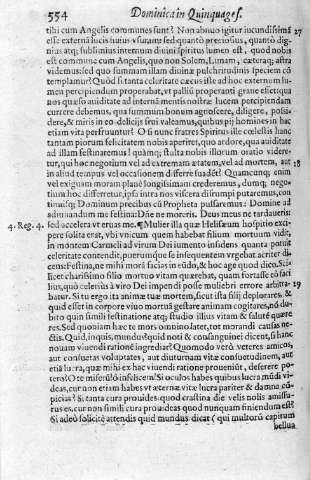 554 Dominica in Quinquages.
tibi cum Angelis communes sunt? Non abnuo igitur iucundissimã 27
esse externã lucis huius vsurã: sed quantò preciosius, quantò di-
nius atq; sublimius internum diuini spiritus lumen est, quod nobis
est commune cum Angelis, quo non Solem, Lunam, cæteraq; astra
videmus: sed quo summam illam diuinæ pulchritudinis speciem cõ
templamur? Quòd si tanta celeritate cæcus iste ad hoc externum lu-
men percipiendum properabat, vt pallij properanti graue esset: qua
nos quæso auiditate ad internũ mentis nostræ lucem percipiendam
currere debemus, quo summum bonum agnoscere, diligere, possi-
dere, & miris in eo delicijs frui valeamus, quibus pij homines in hac
etiam vita perfruuntur? O si nunc fratres Spiritus ille cœlestis hanc
tantam piorum felicitatem nobis aperiret, quo ardore, qua auiditate
ad illam festinaremus? quàmq; stulta nobis illorum oratio videre-
tur, qui hoc negotium vel ad extremam ætatem, vel ad mortem, aut 28
in aliud tempus vel occasionem differre suadẽt? Quamcunq; enim
vel exiguam moram planè longissimam crederemus, dumq; nego-
tium hoc differretur, ipsa intra nos viscera dirumpi putaremus, con-
tinuisq; Dominum precibus cũ Propheta pulsaremus: Domine ad
adiuuandum me festina: Dñe ne moreris. Deus meus ne tardaueris:
4. Reg. 4. sed accelera vt eruas me. ¶ Mulier illa quæ Helisæum hospitio exci-
pere solita erat, vbi vnicum quem habebat filium mortuum vidit,
in montem Carmeli ad virum Dei iumento insidens quanta potuit
celeritate contendit, puerumque se insequentem vrgebat acriter di-
cens: Festina, ne mihi morã facias in eũdo, & hoc age quod dico. Sci-
licet charissimo filio mortuo vitam quærebat, quam fortasse cõ faci
lius, quò celeriùs à viro Dei impendi posse muliebri errore arbitra- 29
batur. Si tu ergo ita animæ tuæ mortem, sicut ista filij deplorares, &
quid esset in corpore viuo mortuã gestare animam cogitares, nõ du-
bito quin simili festinatione atq; studio illius vitam & salutẽ quære
res. Sed quoniam hæc te mors omnino latet, tot morandi causas ne-
ctis. Quid, inquis, mundus? quid noti & consanguinei dicent, si hanc
nouam viuendi rationẽ ingrediar? Quomodo verò veteres amicos,
aut consuetas voluptates, aut diuturnam vitæ consuetudinem, aut
etiã lucra, quæ mihi ex hac viuendi ratione proueniũt, deserere po-
tero? O te miserũ & infelicem! Si oculos habes quibus lucra mũdi vi-
deas, cur non etiam habes vt æternæ vitæ lucra pariter & damna cõ
spicias? Si tanta cura prouides quod crastina die velis nolis amissu-
rus es, cur non simili cura prouideas quod nunquam finiendum est?
Si adeò solicitè attendis quid mundus dicat (qui multorũ capitum
bellua